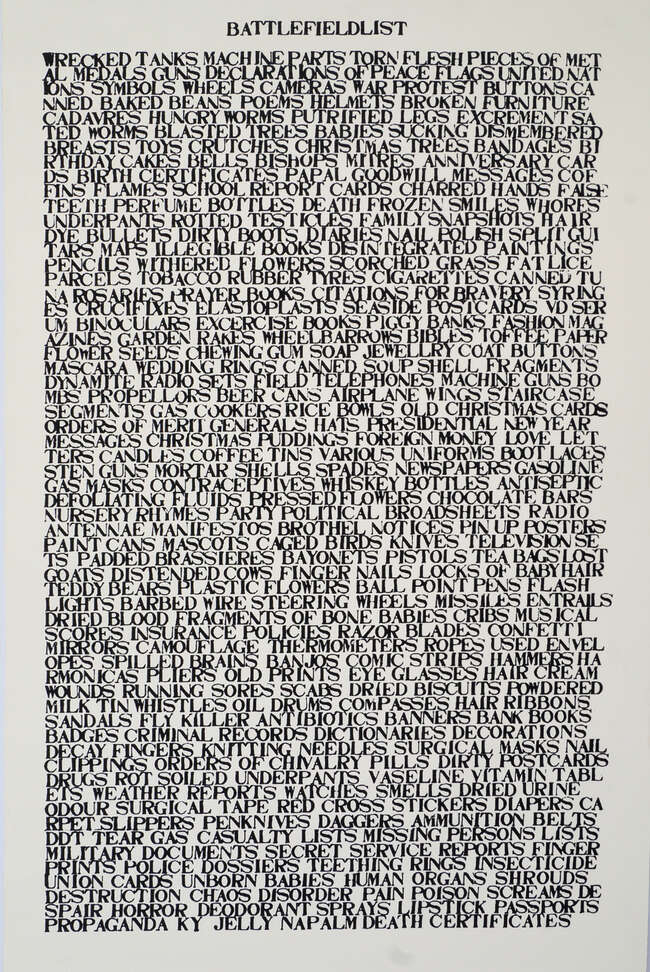 BATTLEFIELDLIST
WRECKED TANKS MACHINE PARTS TORN FLESH PIECES OF MET
AL MEDALS GUNS DECLARATIONS OF PEACE FLAGS UNITED NAT
IONS SYMBOLS WHEELS CAMERAS WAR PROTEST BUTTONS CA
NNED BAKED BEANS POEMS HELMETS BROKEN FURNITURE
CADAVRES HUNGRY WORMS PUTRIFIED LEGS EXCREMENT SA
TED WORMS BLASTED TREES BABIES SUCKING DISMEMBERED
BREASTS TOYS CRUTCHES CHRISTMAS TREES BANDAGES BI
RTHDAY CAKES BELLS BISHOPS MITRES ANNIVERSARY CAR
DS BIRTH CERTIFICATES PAPAL GOODWILL MESSAGES COF
FINS FLAMES SCHOOL REPORT CARDS CHARRED HANDS FALSE
TEETH PERFUME BOTTLES DEATH FROZEN SMILES WHORES
UNDERPANTS ROTTED TESTICLES FAMILY SNAPSHOTS HAIR
DYE BULLETS DIRTY BOOTS DIARIES NAIL POLISH SPLIT GUI
TARS MAPS ILLEGIBLE BOOKS DISINTEGRATED PAINTINGS
PENCILS WITHERED FLOWERS SCORCHED GRASS FAT LICE
PARCELS TOBACCO RUBBER TYRES CIGARETTES CANNED TU
NA ROSARIES PRAYER BOOKS CITATIONS FOR BRAVERY SYRING
ES CRUCIFIXES ELASTOPLASTS SEASIDE POSTCARDS VD SER
UM BINOCULARS EXCERCISE BOOKS PIGGY BANKS FASHION MAG
AZINES GARDEN RAKES WHEELBARROWS BIBLES TOFFEE PAPER
FLOWER SEEDS CHEWING GUM SOAP JEWELLRY COAT BUTTONS
MASCARA WEDDING RINGS CANNED SOUP SHELL FRAGMENTS
DYNAMITE RADIO SETS FIELD TELEPHONES MACHINE GUNS BO
MBS PROPELLORS BEER CANS AIRPLANE WINGS STAIRCASE
SEGMENTS GAS COOKERS RICE BOWLS OLD CHRISTMAS CARDS
ORDERS OF MERIT GENERALS HATS PRESIDENTIAL NEW YEAR
MESSAGES CHRISTMAS PUDDINGS FOREIGN MONEY LOVE LET
TERS CANDLES COFFEE TINS VARIOUS UNIFORMS BOOT LACES
STEN GUNS MORTAR SHELLS SPADES NEWSPAPERS GASOLINE
GAS MASKS CONTRACEPTIVES WHISKEY BOTTLES ANTISEPTIC
DEFOLIATING FLUIDS PRESSED FLOWERS CHOCOLATE BARS
NURSERY RHYMES PARTY POLITICAL BROADSHEETS RADIO
ANTENNAE MANIFESTOS BROTHEL NOTICES PIN UP POSTERS
PAINT CANS MASCOTS CAGED BIRDS KNIVES TELEVISION SE
TS PADDED BRASSIERES BAYONETS PISTOLS TEA BAGS LOST
GOATS DISTENDED COWS FINGER NAILS LOCKS OF BABY HAIR
TEDDY BEARS PLASTIC FLOWERS BALL POINT PENS FLASH
LIGHTS BARBED WIRE STEERING WHEELS MISSILES ENTRAILS
DRIED BLOOD FRAGMENTS OF BONE BABIES CRIBS MUSICAL
SCORES INSURANCE POLICIES RAZOR BLADES CONFETTI
MIRRORS CAMOUFLAGE THERMOMETERS ROPES USED ENVEL
OPES SPILLED BRAINS BANJOS COMIC STRIPS HAMMERS HA
RMONICAS PLIERS OLD PRINTS EYE GLASSES HAIR CREAM
WOUNDS RUNNING SORES SCABS DRIED BISCUITS POWDERED
MILK TIN WHISTLES OIL DRUMS COMPASSES HAIR RIBBONS
SANDALS FLY KILLER ANTIBIOTICS BANNERS BANK BOOKS
BADGES CRIMINAL RECORDS DICTIONARIES DECORATIONS
DECAY FINGERS KNITTING NEEDLES SURGICAL MASKS NAIL
CLIPPINGS ORDERS OF CHIVALRY PILLS DIRTY POSTCARDS
DRUGS ROT SOILED UNDERPANTS VASELINE VITAMIN TABL
ETS WEATHER REPORTS WATCHES SMELLS DRIED URINE
ODOUR SURGICAL TAPE RED CROSS STICKERS DIAPERS CA
RPET SLIPPERS PENKNIVES DAGGERS AMMUNITION BELTS
DDT TEAR GAS CASUALTY LISTS MISSING PERSONS LISTS
MILITARY DOCUMENTS SECRET SERVICE REPORTS FINGER
PRINTS POLICE DOSSIERS TEETHING RINGS INSECTICIDE
UNION CARDS UNBORN BABIES HUMAN ORGANS SHROUDS
DESTRUCTION CHAOS DISORDER PAIN POISON SCREAMS DE
SPAIR HORROR DEODORANT SPRAYS LIPSTICK PASSPORTS
PROPAGANDA KY JELLY NAPALM DEATH CERTIFICATES